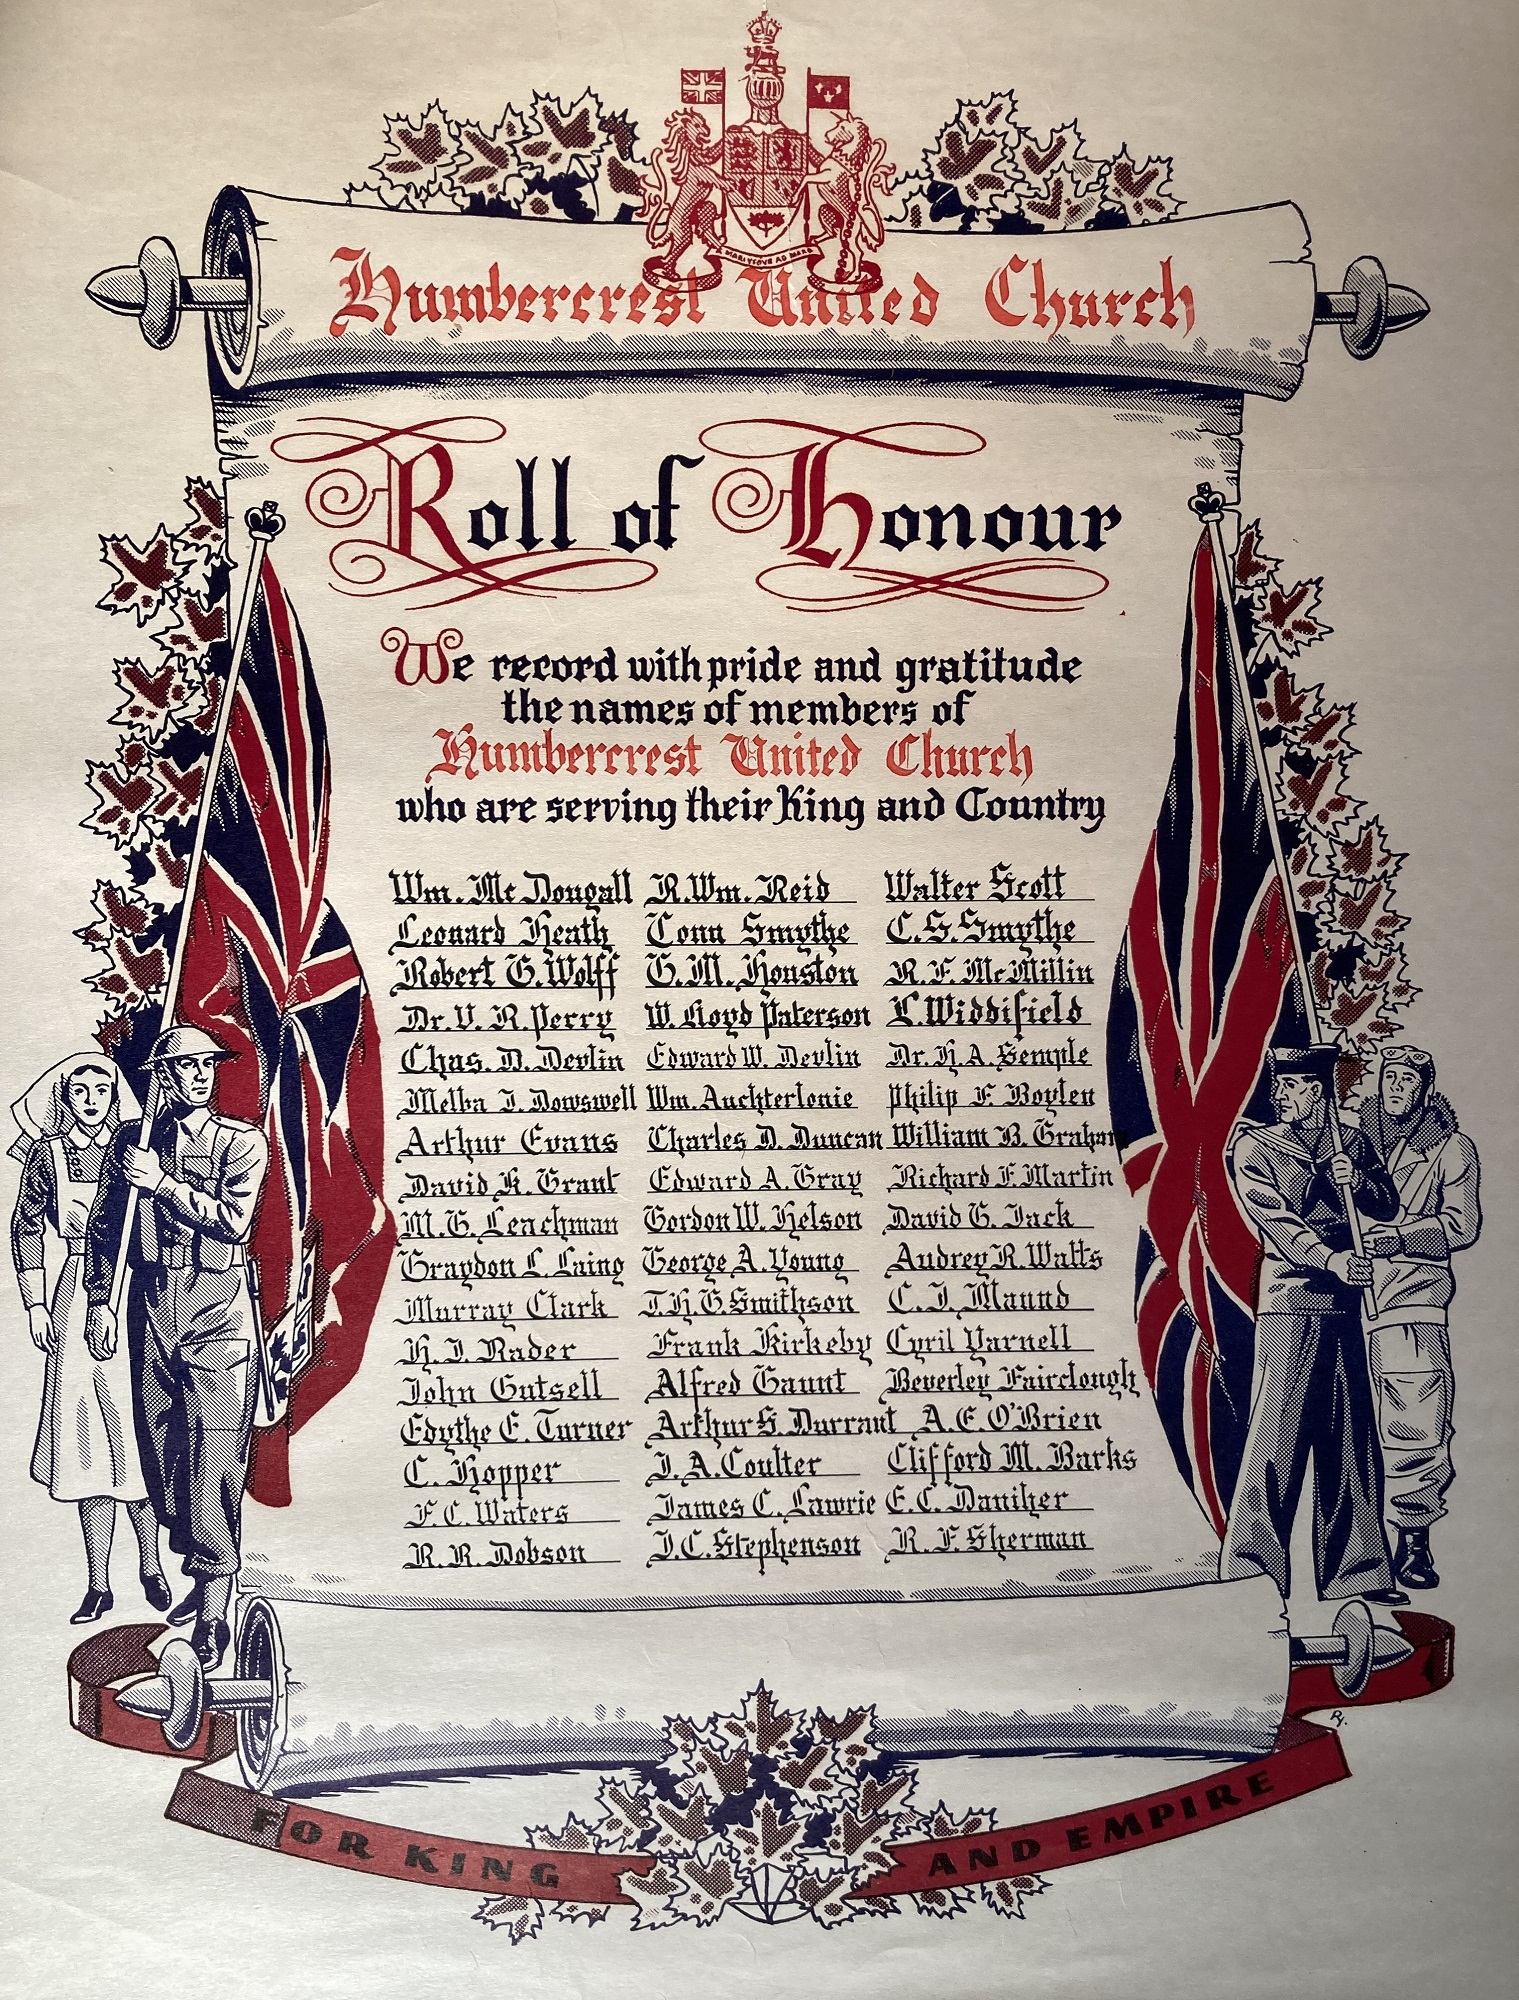 A MARI USQUE AD MARE
Humbercrest United Church
Roll of Honour
We record with pride and gratitude
the names of members of
Humbercrest United Church
who are serving their King and Country
Wm. McDougall R. Wm. Reid Walter Scott
Leonard Heath Conn Smythe C. S. Smythe
Robert G. Wolff G. M. Houston R. F. McMillin
Dr. V. R. Perry W. Lloyd Paterson L. Widdifield
Chas. D. Devlin Edward W. Devlin Dr. H. A. Semple
Melba I. Dowswell Wm. Auchterlonie Philip F. Boylen
Arthur Evans Charles D. Duncan William B. Graham
David K. Grant Edward A. Gray Richard F. Martin
M. G. Leachman Gordon W. Helson David G. Jack
Graydon L. Laing George A. Young Audrey R. Watts
Murray Clark T. H. G. Smithson C. J. Maund
H. J. Rader Frank Kirkeby Cyril Yarnell
John Gutsell Alfred Gaunt Beverley Fairclough
Edythe E. Turner Arthur S. Durrant A. E. O'Brien
C. Hopper J. A. Coulter Clifford M. Barks
F. C. Waters James C. Lawrie E. C. Daniher
R. R. Dobson J. C. Stephenson R. F. Sherman
FOR KING AND EMPIRE